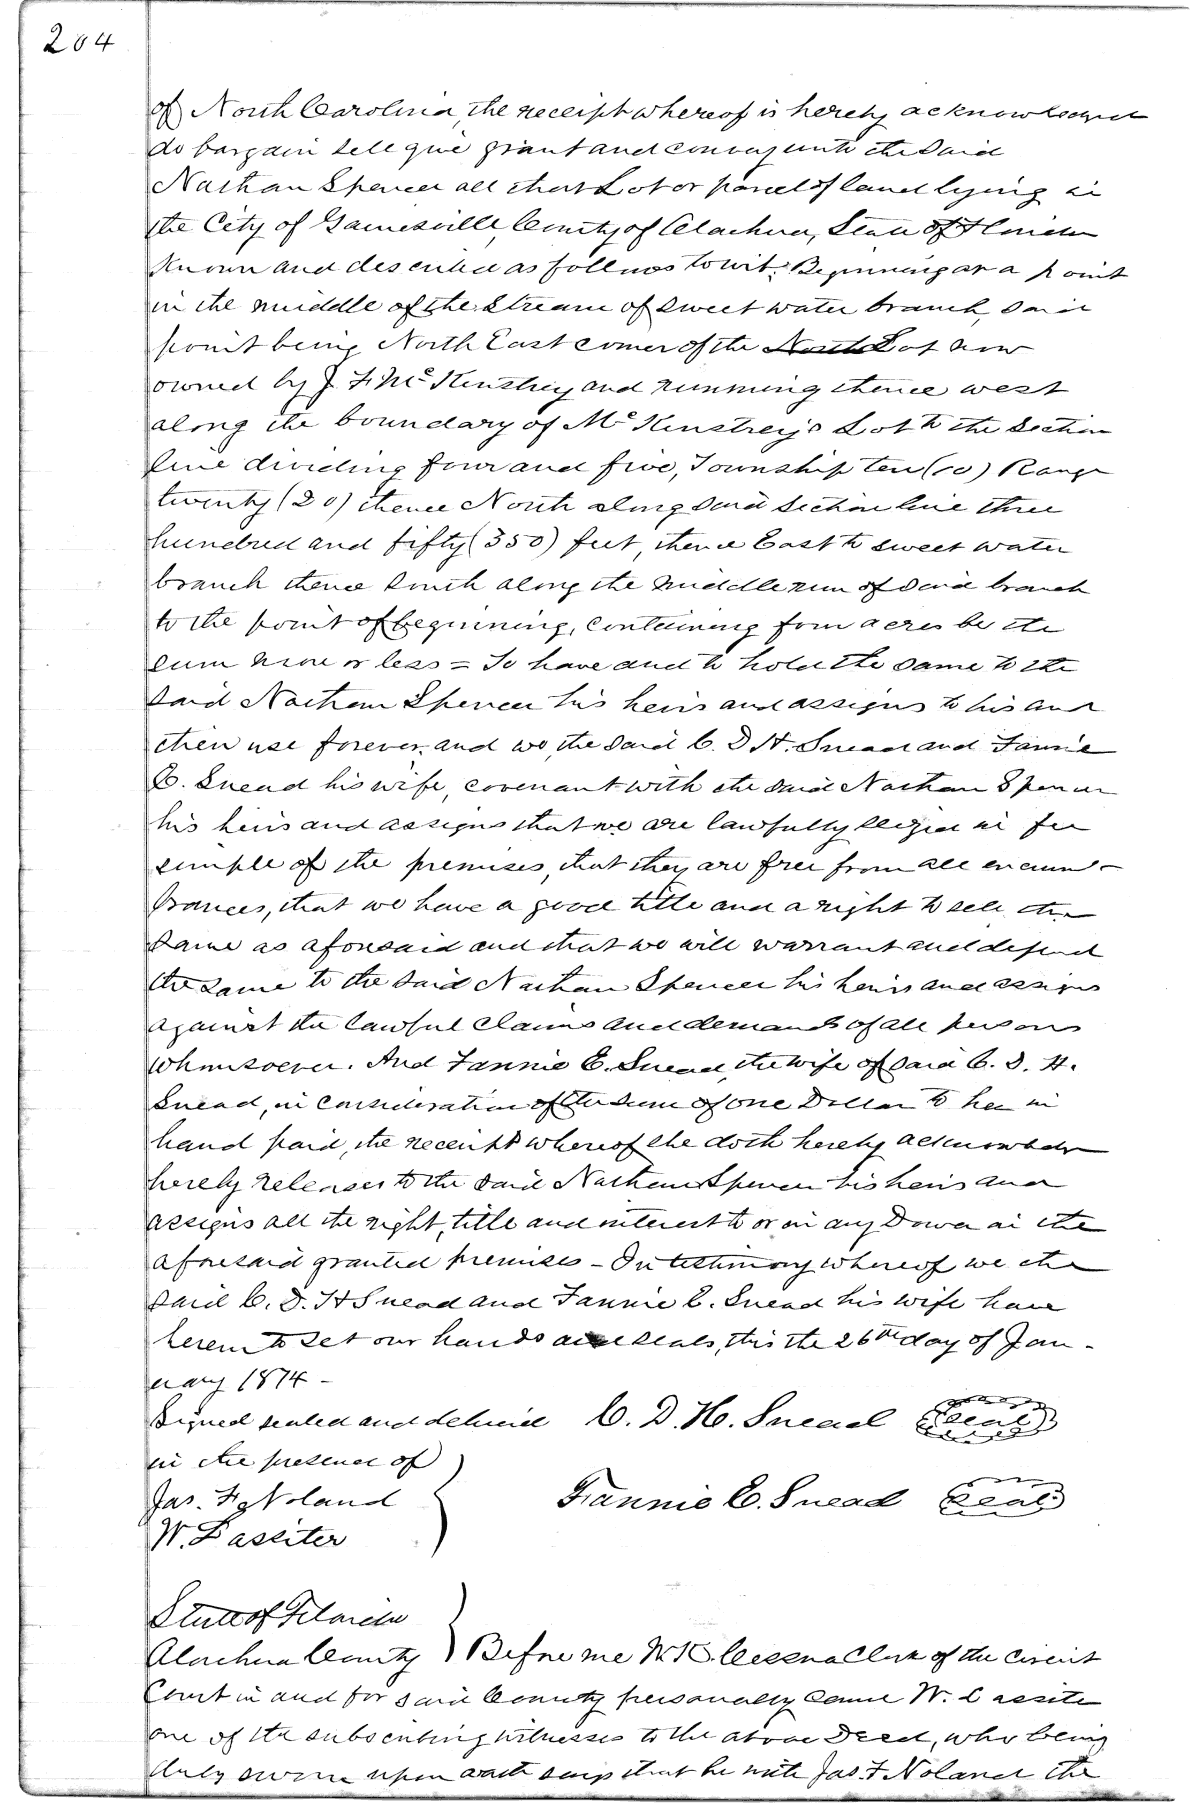 204
of North Carolina, the receipt whereof is hereby acknowledged
do bargain sell give grant and convey unto the said
Nathan Spencer all that Lot or parcel of land lying in
the City of Gainesville, County of Alachua, State of Florida
known and described as follows to wit: Beginning at a point
in the middle of the stream of sweet water branch, said
point being North East corner of the North Lot now
owned by J. F. McKinstrey and running thence west
along the boundary of McKinstrey's Lot to the section
line dividing four and five, Township ten (10) Range
twenty (20) thence North along said section line three
hundred and fifty (350) feet, thence East to sweet water
branch thence South along the middle run of said branch
to the point of beginning, containing four acres be the
sum more or less = To have and to hold the same to the
said Nathan Spencer his heirs and assigns to his and
their use forever, and we, the said C. D. H. Snead and Fannie
E. Snead his wife, covenant with the said Nathan Spencer
his heirs and assigns that we are lawfully seized in fee
simple of the premises, that they are free from all encum-
brances, that we have a good title and a right to sell the
same as aforesaid and that we will warrant and defend
the same to the said Nathan Spencer his heirs and assigns
against the lawful claims and demands of all persons
whomsoever. And Fannie E. Snead, the wife of said C. D. H.
Snead, in consideration of the sum of one Dollar to her in
hand paid, the receipt whereof she doth hereby acknowledge
hereby releases to the said Nathan Spencer his heirs and
assigns all the right, title and interest to or in any Dower in the
aforesaid granted premises - In testimony whereof we the
said C. D. H Snead and Fannie E. Snead his wife have
hereunto set our hands and seals, this the 26th day of Jan-
uary 1874 -
Signed sealed and delivered C. D. H. Snead Seal
in the presence of
Jas. F. Noland Fannie E. Snead Seal
W. Lassiter
State of Florida
Alachua County Before me W. K. Cessna Clerk of the Circuit
Court in and for said County personally came W. Lassiter
one of the subscribing witnesses to the above Deed, who being
duly sworn upon oath says that he with Jas. F Noland the